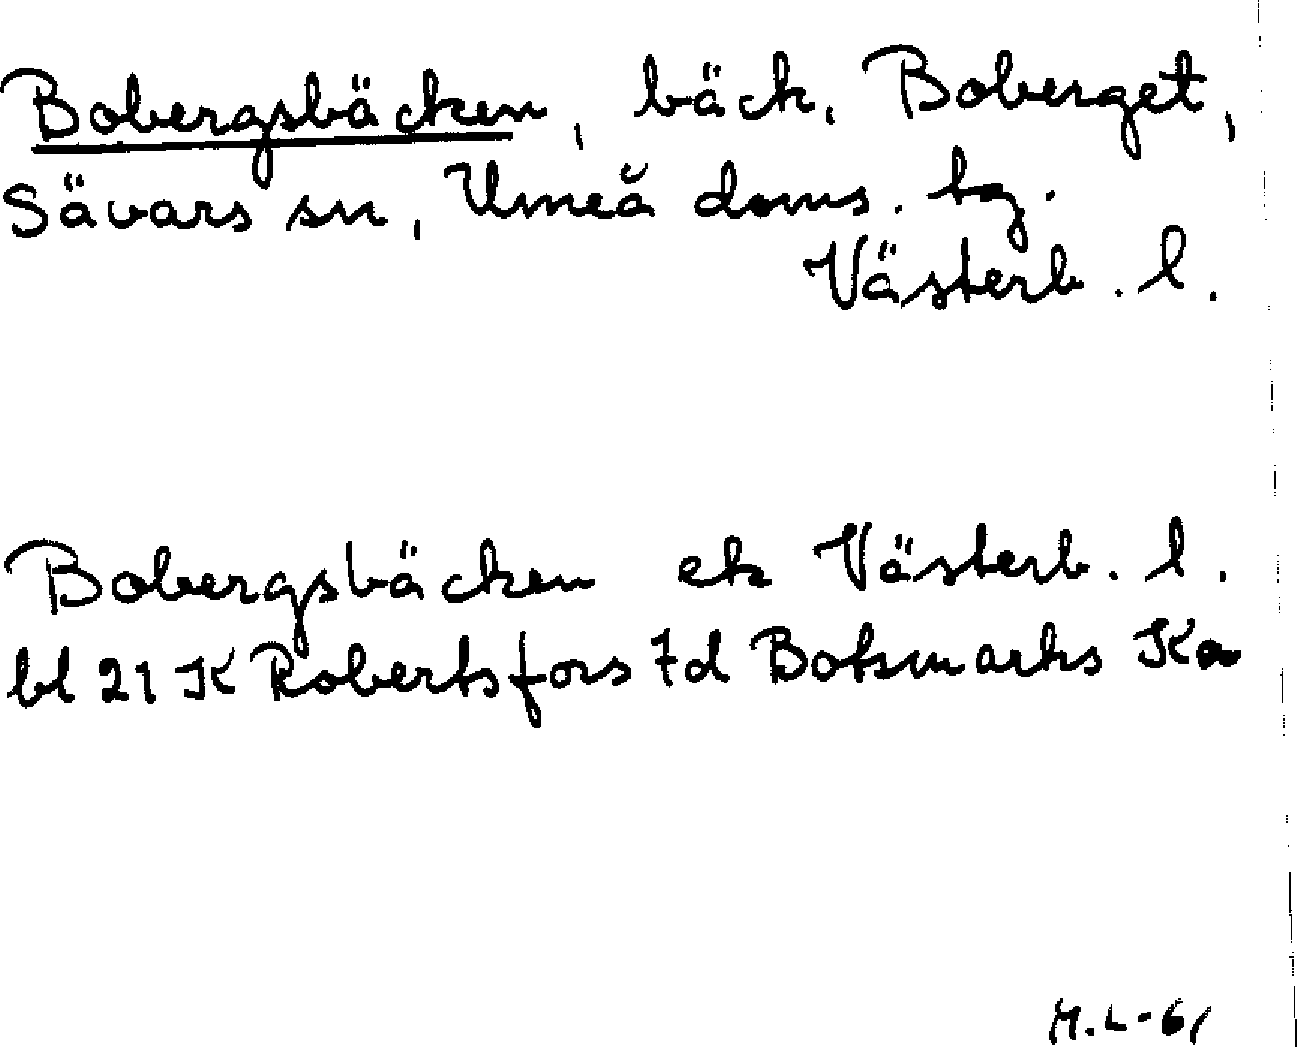 Bobergsbäcken, bäck, Boberget,
Sävars sn, Umeå doms. tg.
Västerb. l.
Bobergsbäcken ek Västerb. l.
bl 21 K Robertsfors 7d Botsmarks Ka
M.L-61